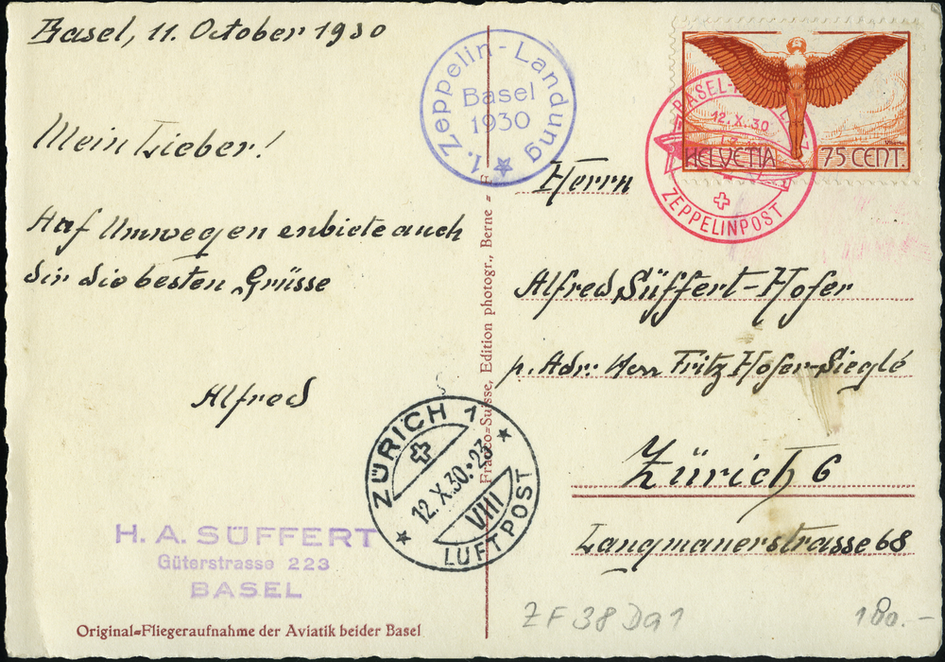 Basel, 11. October 1930
Mein Lieber!
Auf Umwegen enbiete auch
dir die besten Grüsse
Alfred
H. A. SÜFFERT
Güterstrasse 223
BASEL
Original=Fliegeraufnahme der Aviatik beider Basel
1. Zeppelin-Landung
Basel
1930
Franco-Suisse, Edition photogr., Berne
ZÜRICH 1
12.X.30.-23
VIII
LUFTPOST
BASEL
12.X.30
ZEPPELINPOST
HELVETIA 75 CENT.
Herrn
Alfred Süffert-Hofer
p. Adr. Herr Fritz Hofer-Sieglé
Zürich 6
Langmauerstrasse 68
ZF 38 Da1
180.-